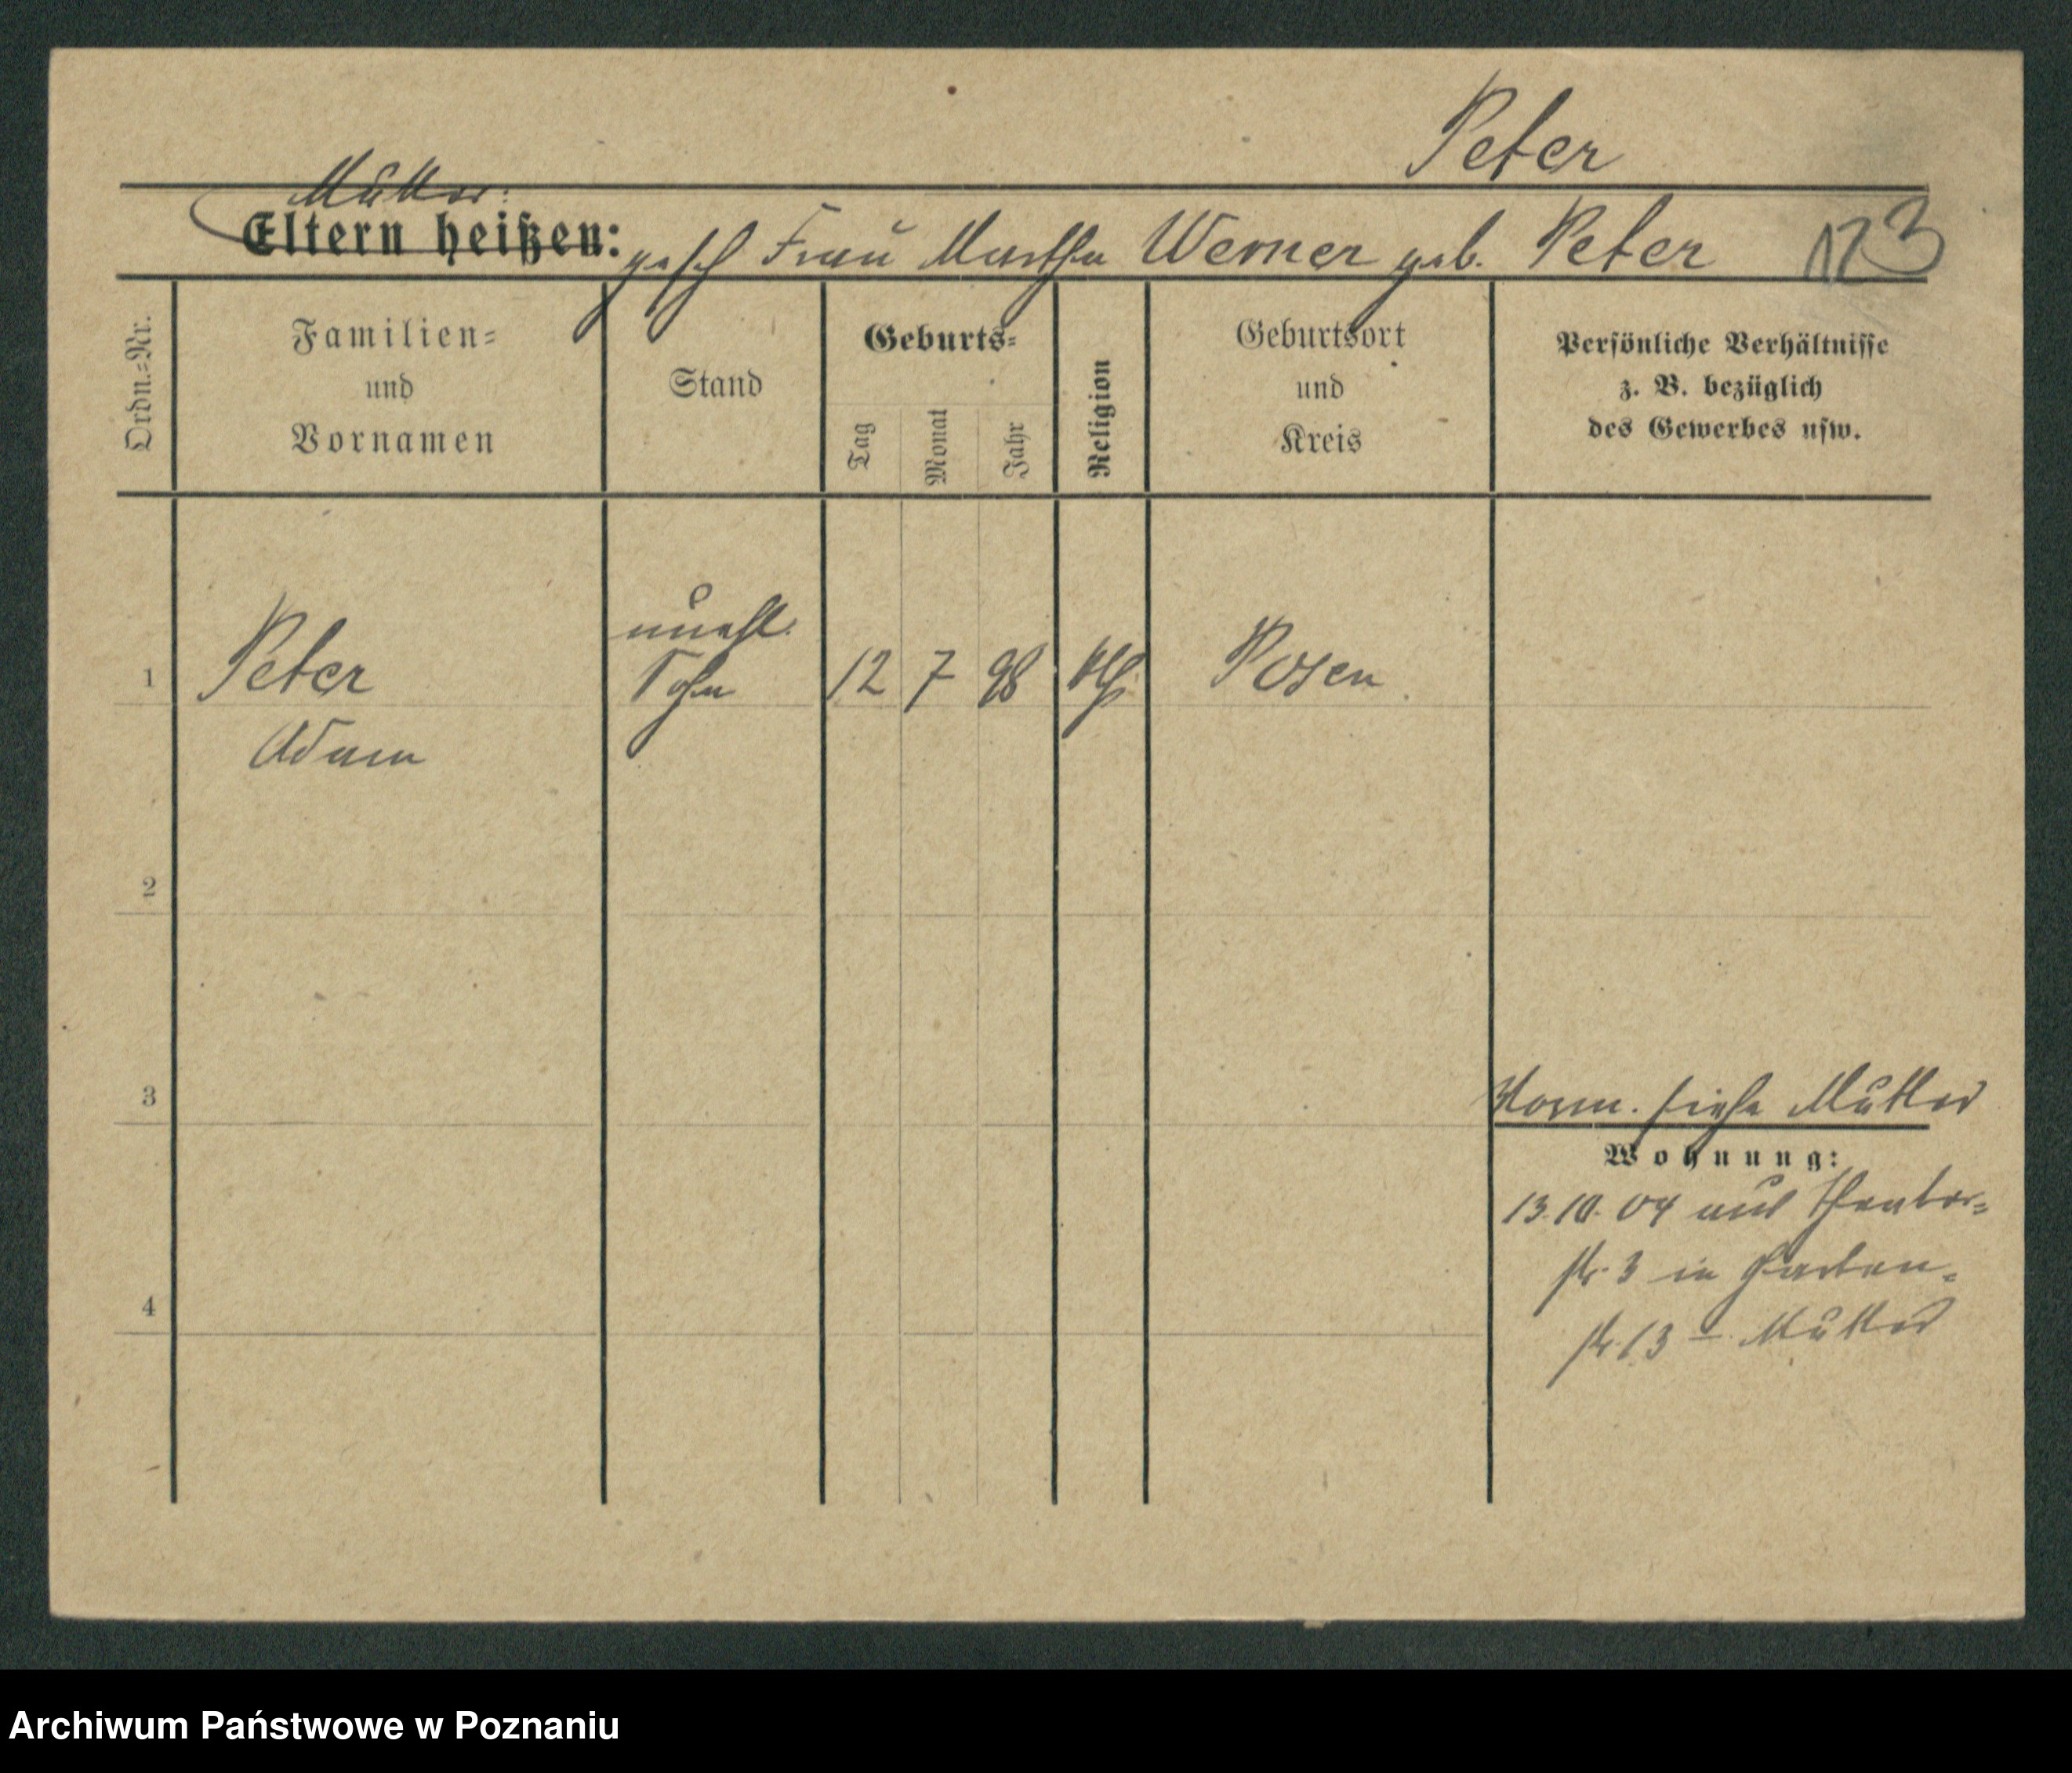 Peter
Mutter:
Eltern heißen: gesch Frau Martha Werner geb. Peter 173
Ordn.-Nr.
Familien-
und
Vornamen
Stand
Geburts-
Tag
Monat
Jahr
Religion
Geburtsort
und
Kreis
Persönliche Verhältnisse
z. B. bezüglich
des Gewerbes usw.
unehl.
1 Peter Sohn 12 7 98 Posen
Adam
2
3
siehe Mutter
Wohnung:
13.10.04 aus Theater-
str. 3 in Garten-
str. 13 Mutter
4
Archiwum Państwowe w Poznaniu